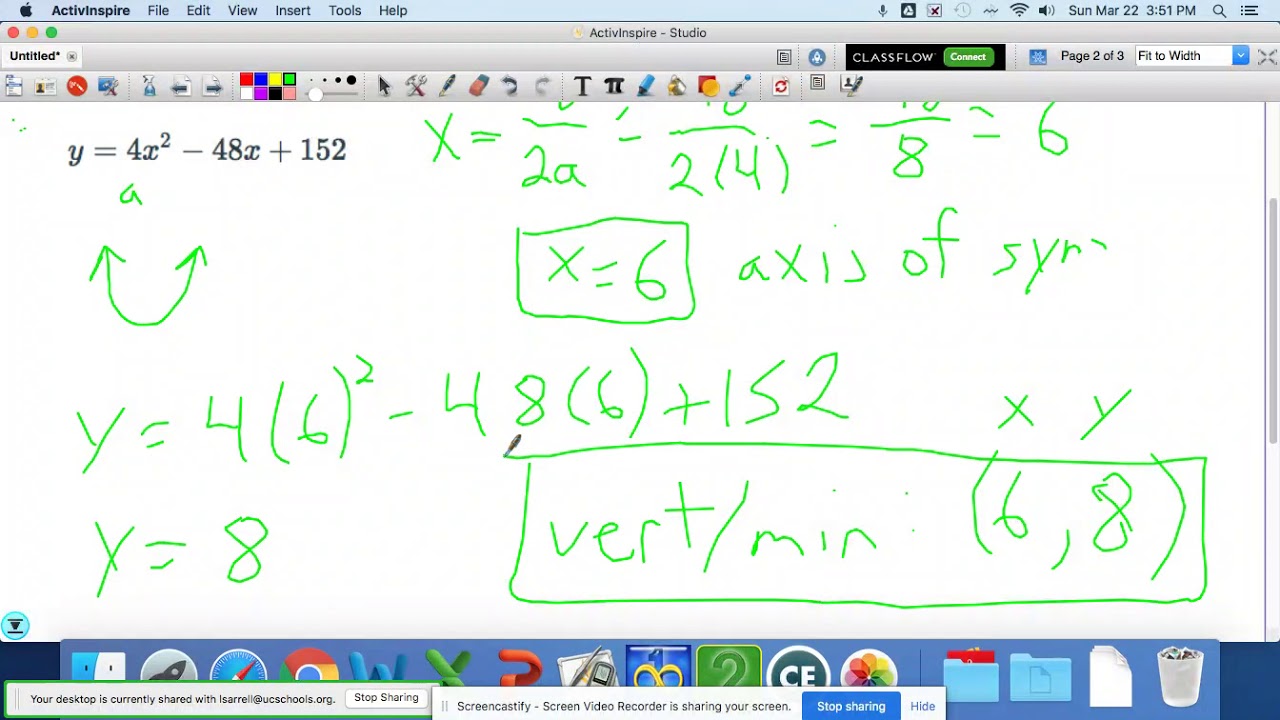 ActivInspire File Edit View Insert Tools Help Sun Mar 22 3:51 PM
ActivInspire - Studio
Untitled* CLASSFLOW Connect Page 2 of 3 Fit to Width
y = 4x² − 48x + 152
a
x = /2a = /2(4) = /8 = 6
x = 6 axis of sym
y = 4(6)² - 48(6) + 152
x y
y = 8 vert/min: (6, 8)
W X P 2 CE
Your desktop is currently shared with lsarrell@ucschools.org. Stop Sharing
Screencastify - Screen Video Recorder is sharing your screen. Stop sharing Hide